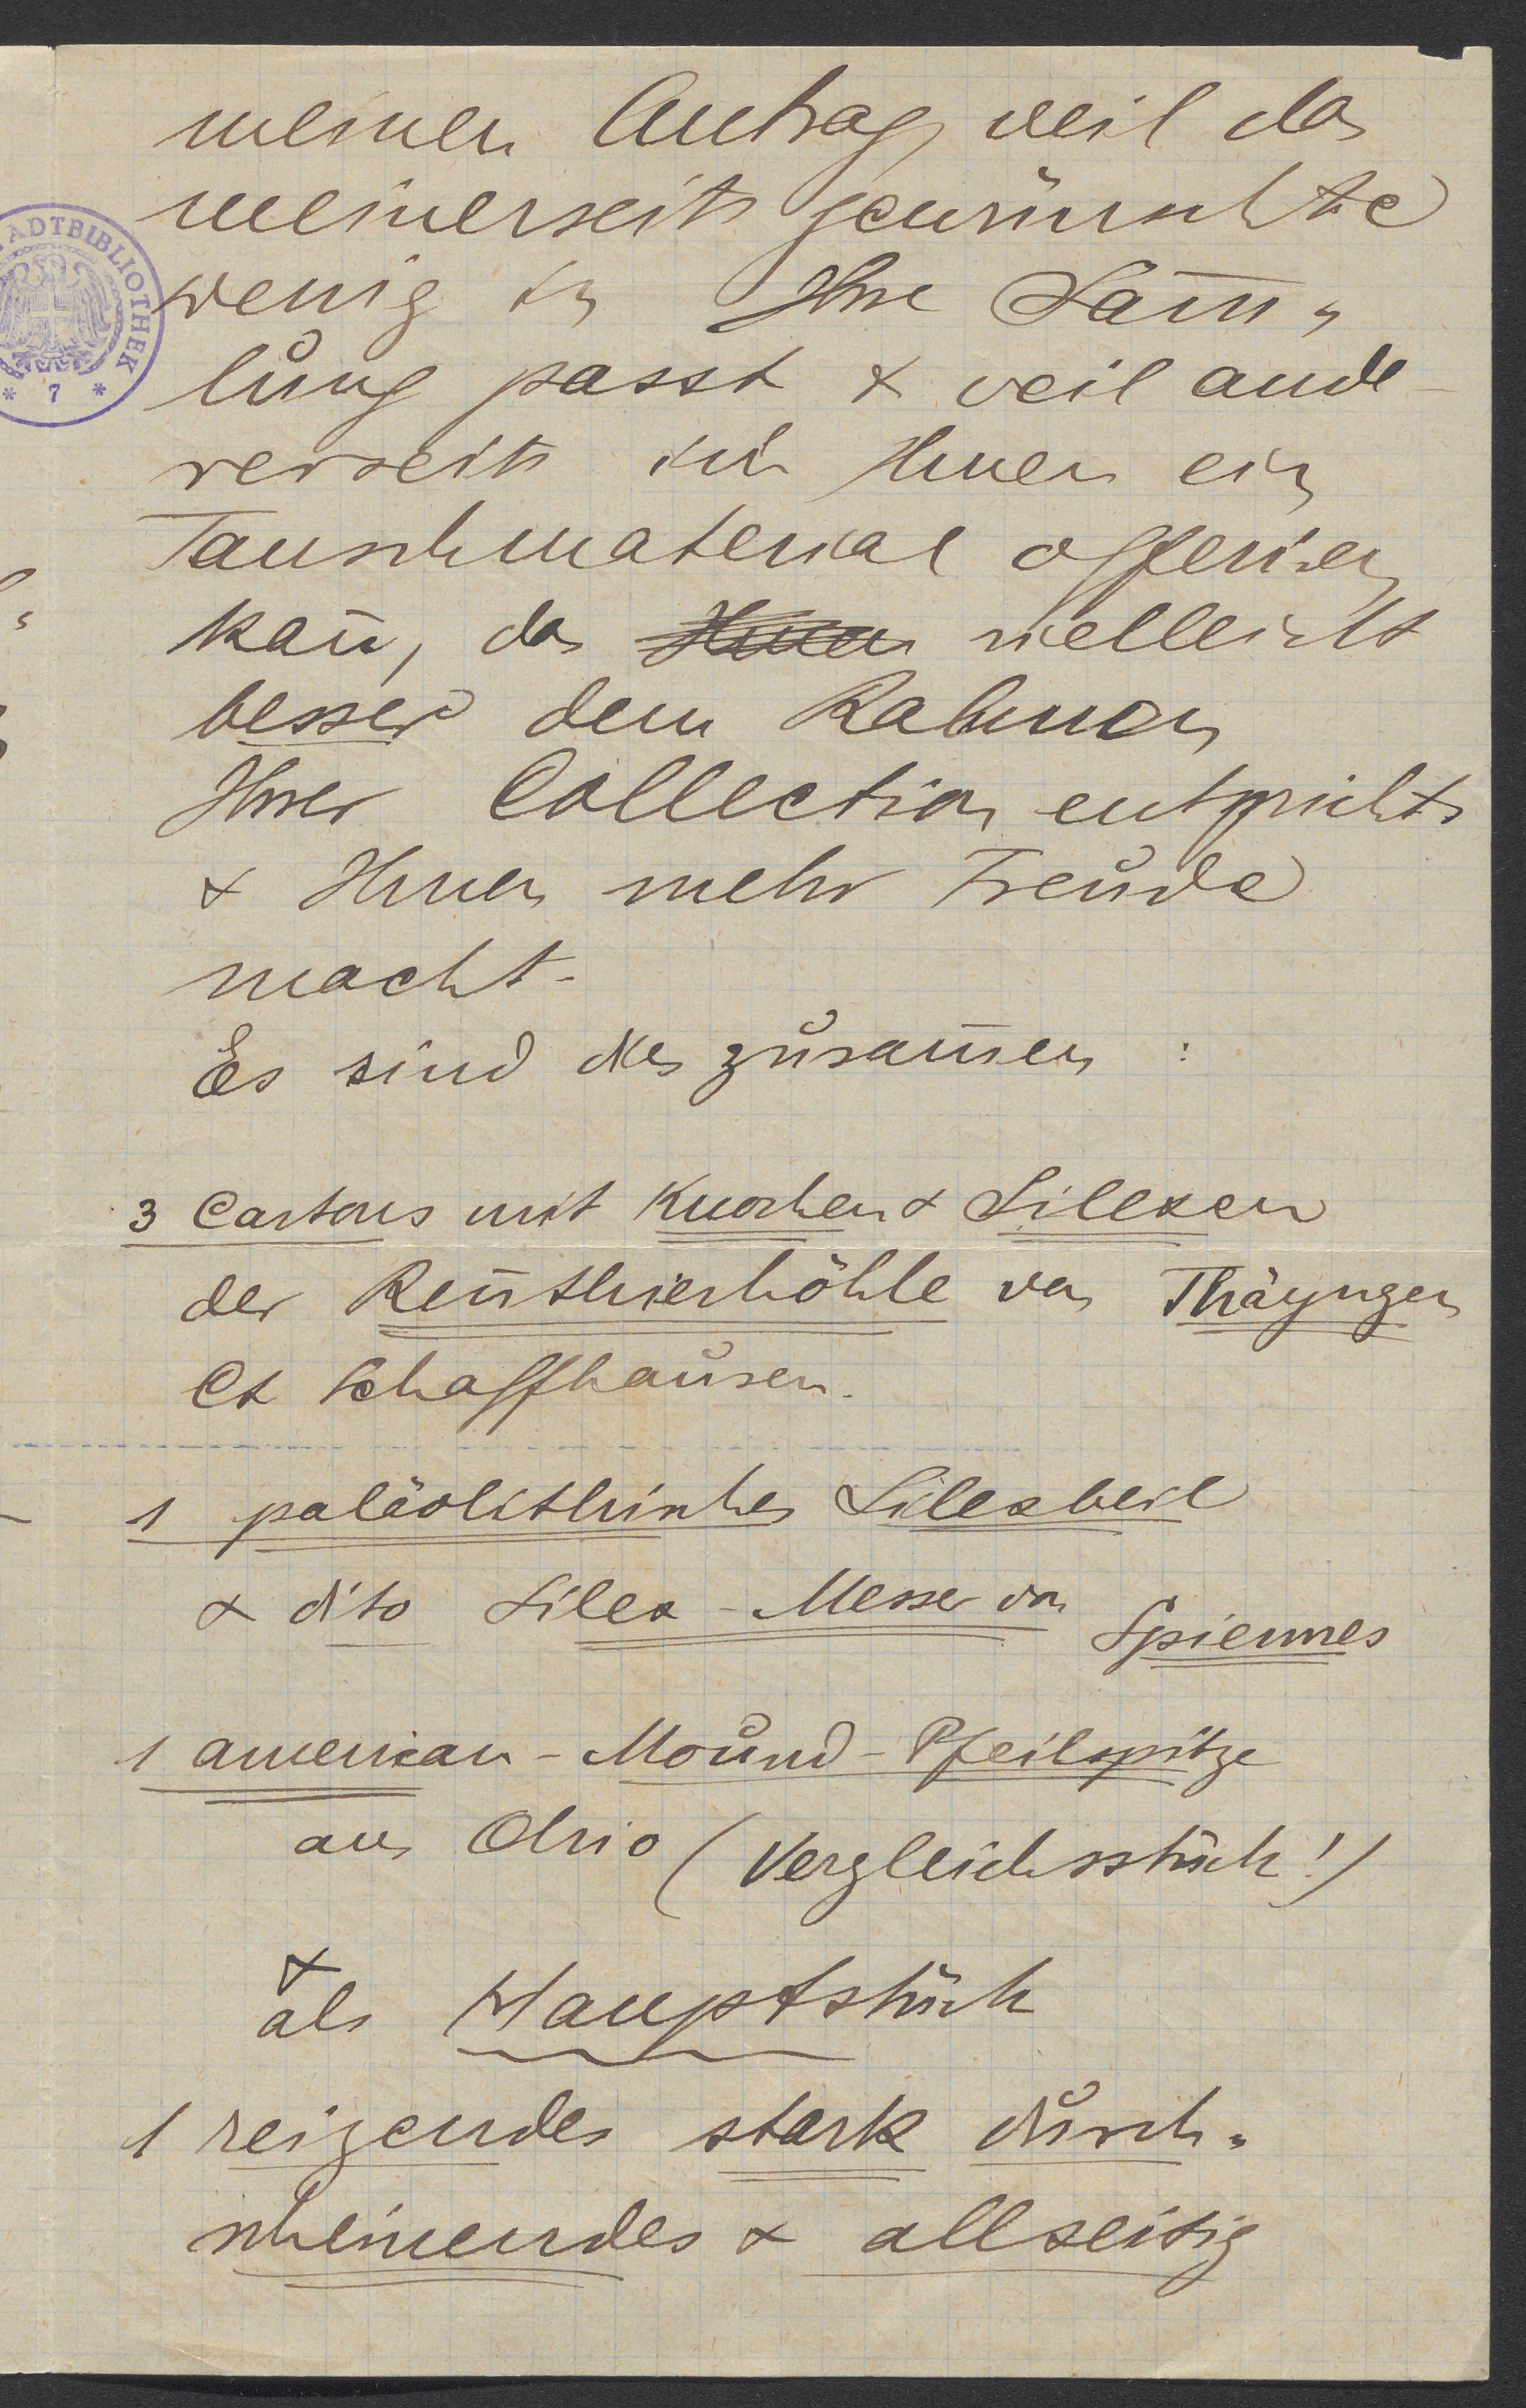 meinen Antrag, weil das
meinerseits gewünschte
wenig in Ihre Sam̅-
STADTBIBLIOTHEK
* 7 *
lung passt & weil ande-
rerseits ich Ihnen ein
Tauschmaterial offerieren
kan̅, das Ihnen vielleicht
besser dem Rahmen
Ihrer Collection entspricht
& Ihnen mehr Freude
macht.
Es sind dies zusam̅en :
3 Cartons mit Knochen & Silexen
der Ren̅thierhöhle von Thäyngen
Ct Schaffhausen.
1 paläolithisches Silexbeil
& dito Silex-Messer von Spiennes
1 american-Mound-Pfeilspitze
aus Ohio (Vergleichsstück!)
&
als Hauptstück
1 reizendes stark durch-
scheinendes & allseitig